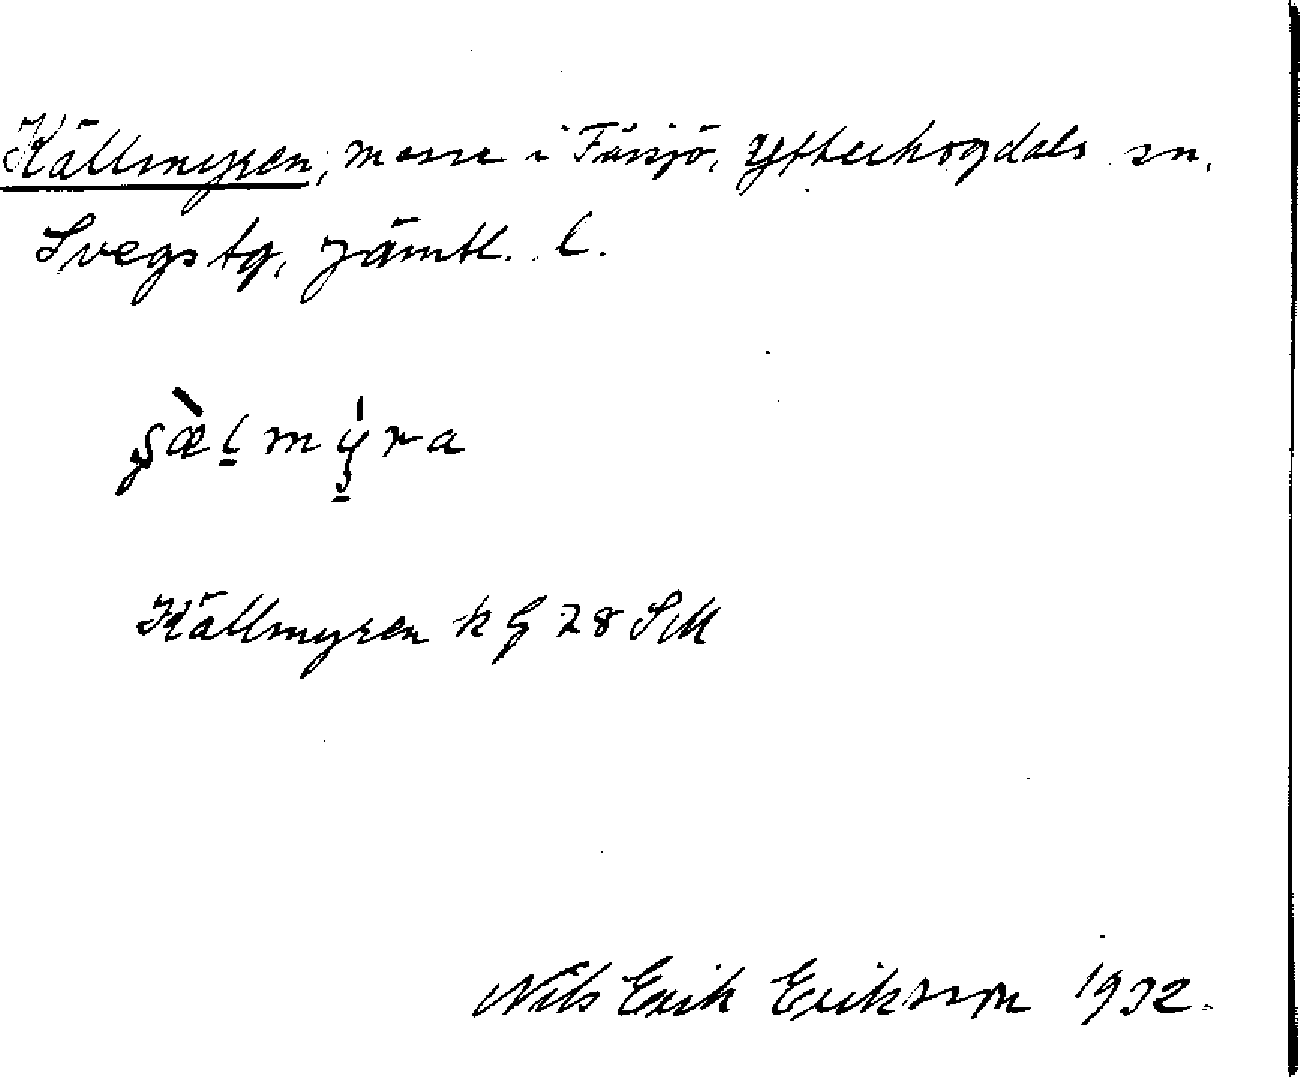 Källmyren, mosse i Fåssjö, Ytterhogdals sn.
Svegs tg, Jämtl. l.
Källmyren k G 28 SM
Nils Erik Eriksson 1932.